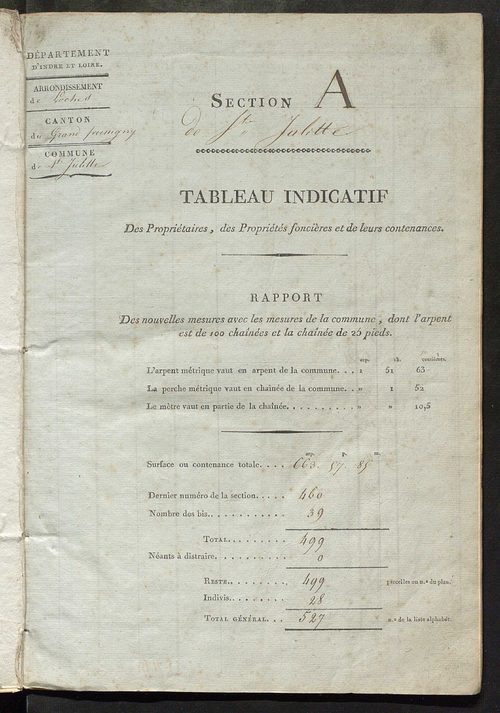 DÉPARTEMENT
D'INDRE ET LOIRE.
ARRONDISSEMENT
de Loches
CANTON
du Grand pressigny
COMMUNE
de Ste Julette
SECTION A
De Ste Julette
TABLEAU INDICATIF
Des Propriétaires, des Propriétés foncières et de leurs contenances.
RAPPORT
Des nouvelles mesures avec les mesures de la commune, dont l'arpent
est de 100 chaînées et la chaînée de 25 pieds.
arp. ch. centièmes.
L'arpent métrique vaut en arpent de la commune. . . 1 51 63
La perche métrique vaut en chaînée de la commune. . . » 1 52
Le mètre vaut en partie de la chaînée. . . . . . . . . . » » 10,5
arp. p. m.
Surface ou contenance totale. . . . 663. 57. 85
Dernier numéro de la section. . . . . 460
Nombre des bis. . . . . . . . . . . 39
TOTAL. . . . . . . . . 499
Néants à distraire. . . . . . . . . 0
RESTE. . . . . . . . . 499 parcelles ou n.os du plan.
Indivis. . . . . . . . . 28
TOTAL GÉNÉRAL. . . 527 n.os de la liste alphabét.